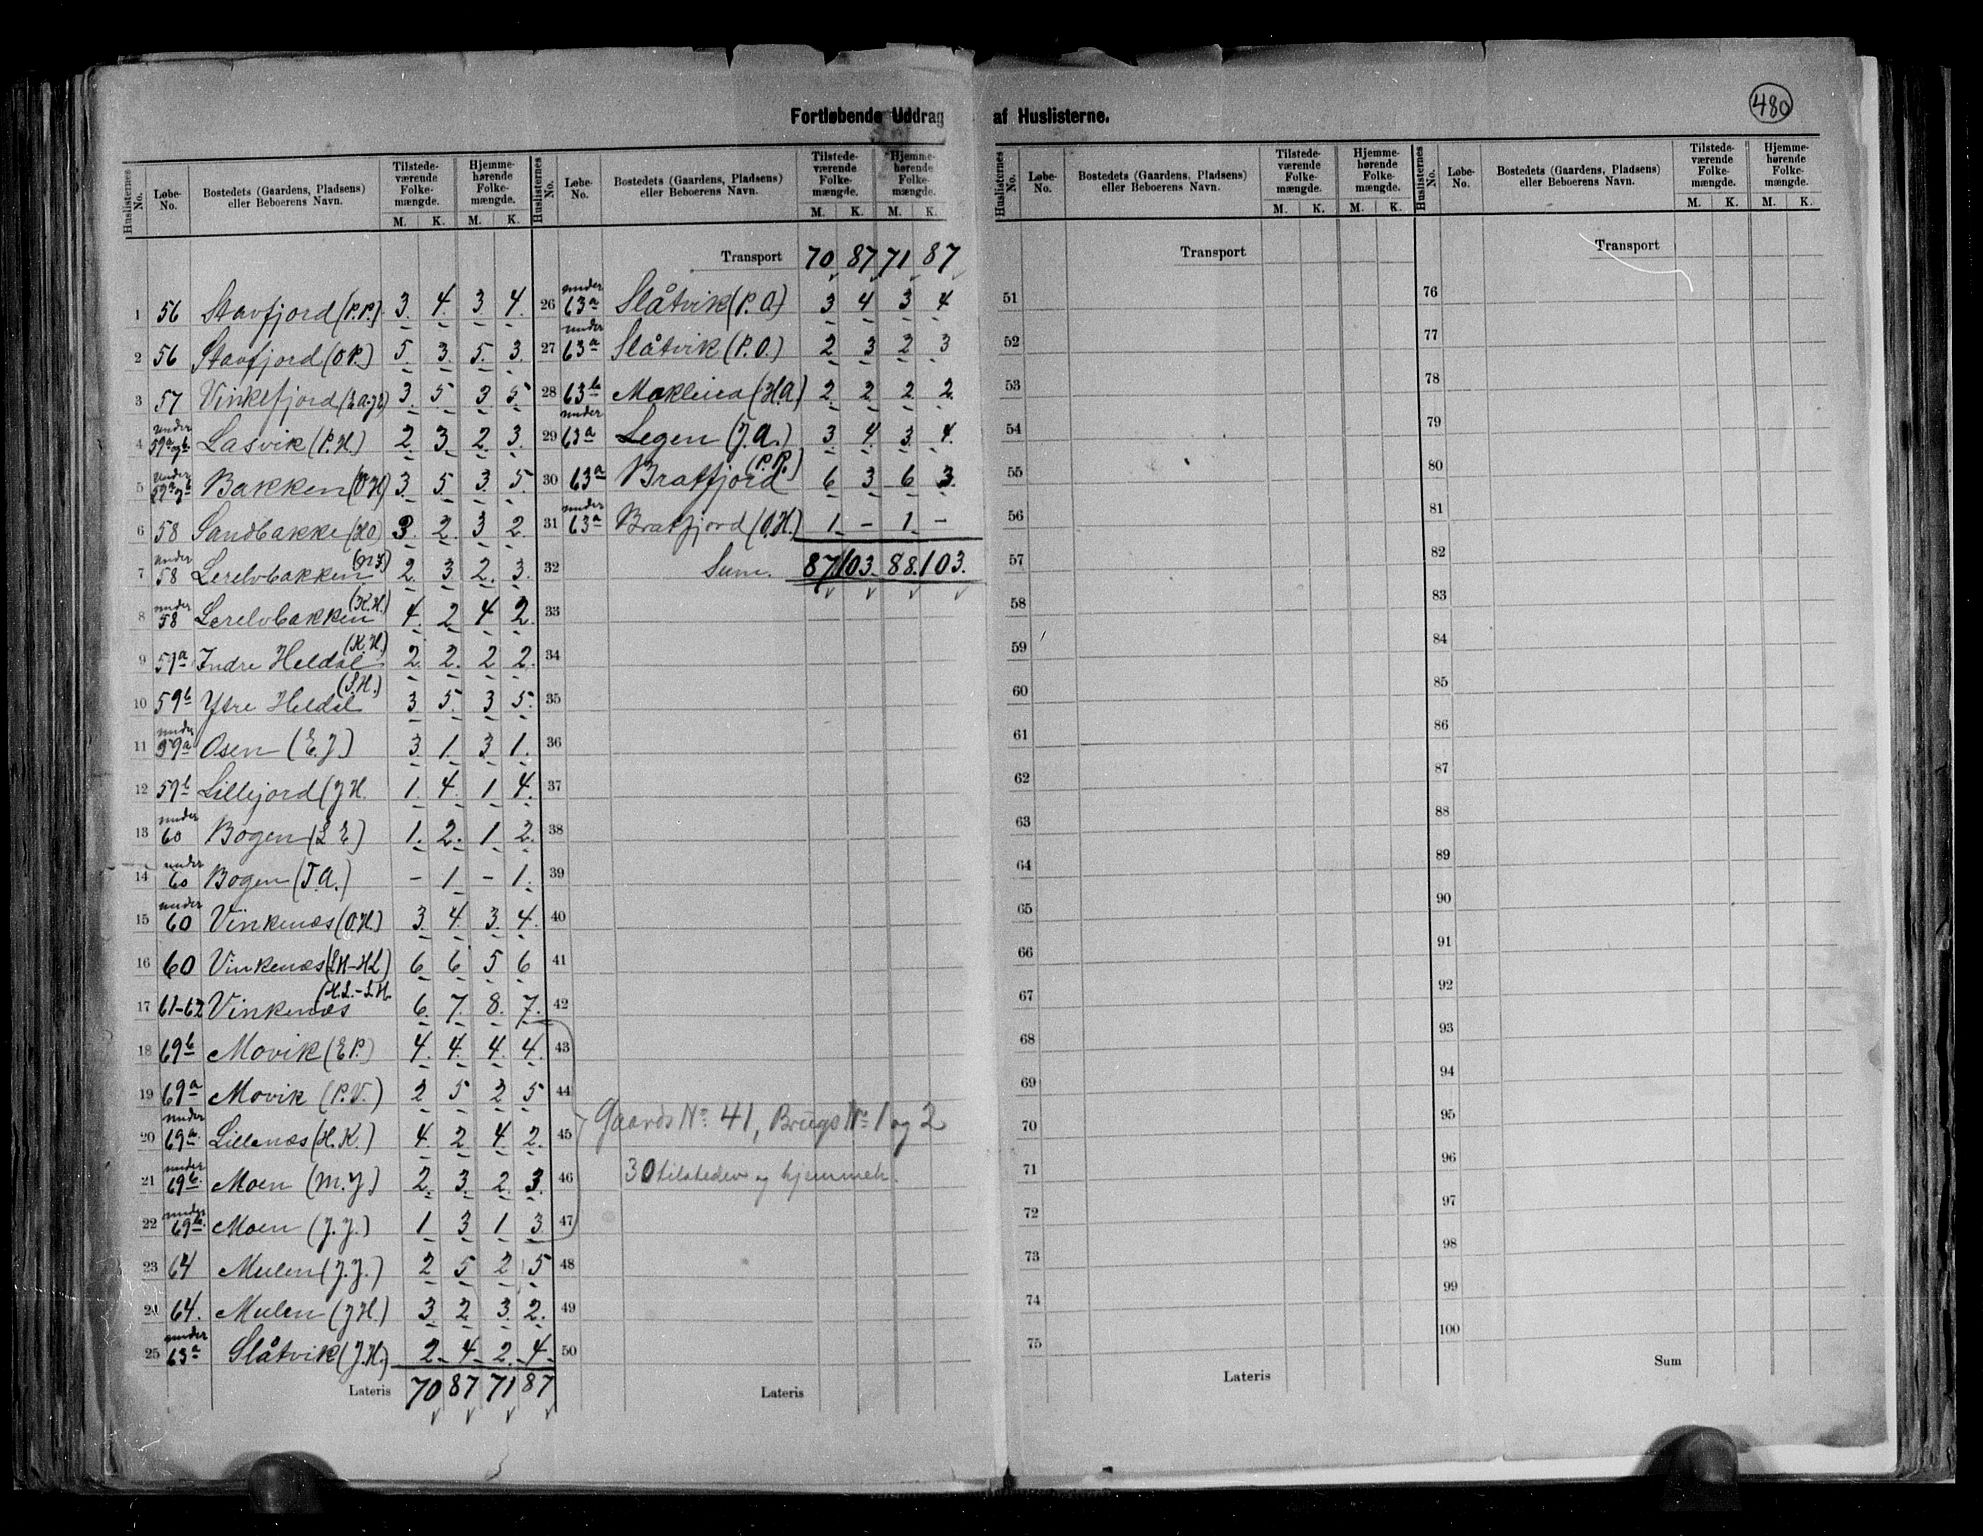 480
Fortløbende Uddrag af Huslisterne.
Huslisternes No. | Løbe-No. | Bostedets (Gaardens, Pladsens) eller Beboerens Navn. | Tilstedeværende Folkemængde. M. K. | Hjemmehørende Folkemængde. M. K.
1 56 Stavfjord (P.P.) 3. 4. 3. 4.
2 56 Stavfjord (O.P.) 5. 3. 5. 3.
3 57 Vinkefjord 3. 5 3. 5
4 under 59a og b Lasvik (P.H.) 2. 3. 2. 3.
5 under 59a og b Bakken (O.H) 3. 5. 3. 5.
6 58 Sandbakke (H.O) 3. 2. 3 2.
7 under 58 Lerelvbakken 2. 3 2. 3.
8 under 58 Lerelvbakken (K.H.) 4. 2 4 2.
9 59a Indre Heldal (K.H.) 2. 2. 2 2.
10 59b Ytre Heldal (S.H.) 3 5. 3 5.
11 under 59a Osen (E.J) 3 1. 3 1.
12 59b Lillejord (J H. 1. 4. 1 4.
13 under 60 Bogen (L E) 1. 2. 1 2.
14 under 60 Bogen (T.A.) - 1 - 1.
15 under 60 Vinkenæs (O.H.) 3. 4. 3. 4.
16 60 Vinkenæs (L H-H L) 6 6 5 6
17 61-62 Vinkenæs (H.L.-L.H. 6. 7. 8. 7.
18 69b Movik (E P.) 4. 4. 4. 4.
19 69a Movik (P.V.) 2 5 2 5
20 under 69a. Lillenæs (H.K.) 4. 2 4. 2.
21 under 69b. Moen (M.J) 2. 3. 2. 3.
22 under 69b Moen (J.J.) 1 3 1 3
23 64 Mulen (J.J.) 2 5 2 5
24 64. Mulen (J H.) 3 2 3. 2.
25 under 63a Slåtvik (J.H.) 2. 4 2. 4.
Lateris 70 87 71 87
Huslisternes No. | Løbe-No. | Bostedets (Gaardens, Pladsens) eller Beboerens Navn. | Tilstedeværende Folkemængde. M. K. | Hjemmehørende Folkemængde. M. K.
Transport 70 87 71 87
26 under 63a Slåtvik (P.O) 3 4 3 4
27 under 63a Slåtvik (P.O.) 2 3 2 3
28 63b Makleiva (H.A) 2. 2 2 2.
29 under 63a Legen (J.A.) 3 4. 3. 4.
30 63a Bratfjord (P.P.) 6 3 6 3.
31 under 63a Bratfjord (O.H.) 1. - 1. -
32 Sum. 87 103. 88. 103.
33
34
35
36
37
38
39
40
41
42
43
44
45 Gaards No. 41, Brugs No. 1 og 2
46 30 tilstedev og hjemmeh.
47
48
49
50
Lateris
Huslisternes No. | Løbe-No. | Bostedets (Gaardens, Pladsens) eller Beboerens Navn. | Tilstedeværende Folkemængde. M. K. | Hjemmehørende Folkemængde. M. K.
Transport
51
52
53
54
55
56
57
58
59
60
61
62
63
64
65
66
67
68
69
70
71
72
73
74
75
Lateris
Huslisternes No. | Løbe-No. | Bostedets (Gaardens, Pladsens) eller Beboerens Navn. | Tilstedeværende Folkemængde. M. K. | Hjemmehørende Folkemængde. M. K.
Transport
76
77
78
79
80
81
82
83
84
85
86
87
88
89
90
91
92
93
94
95
96
97
98
99
100
Sum